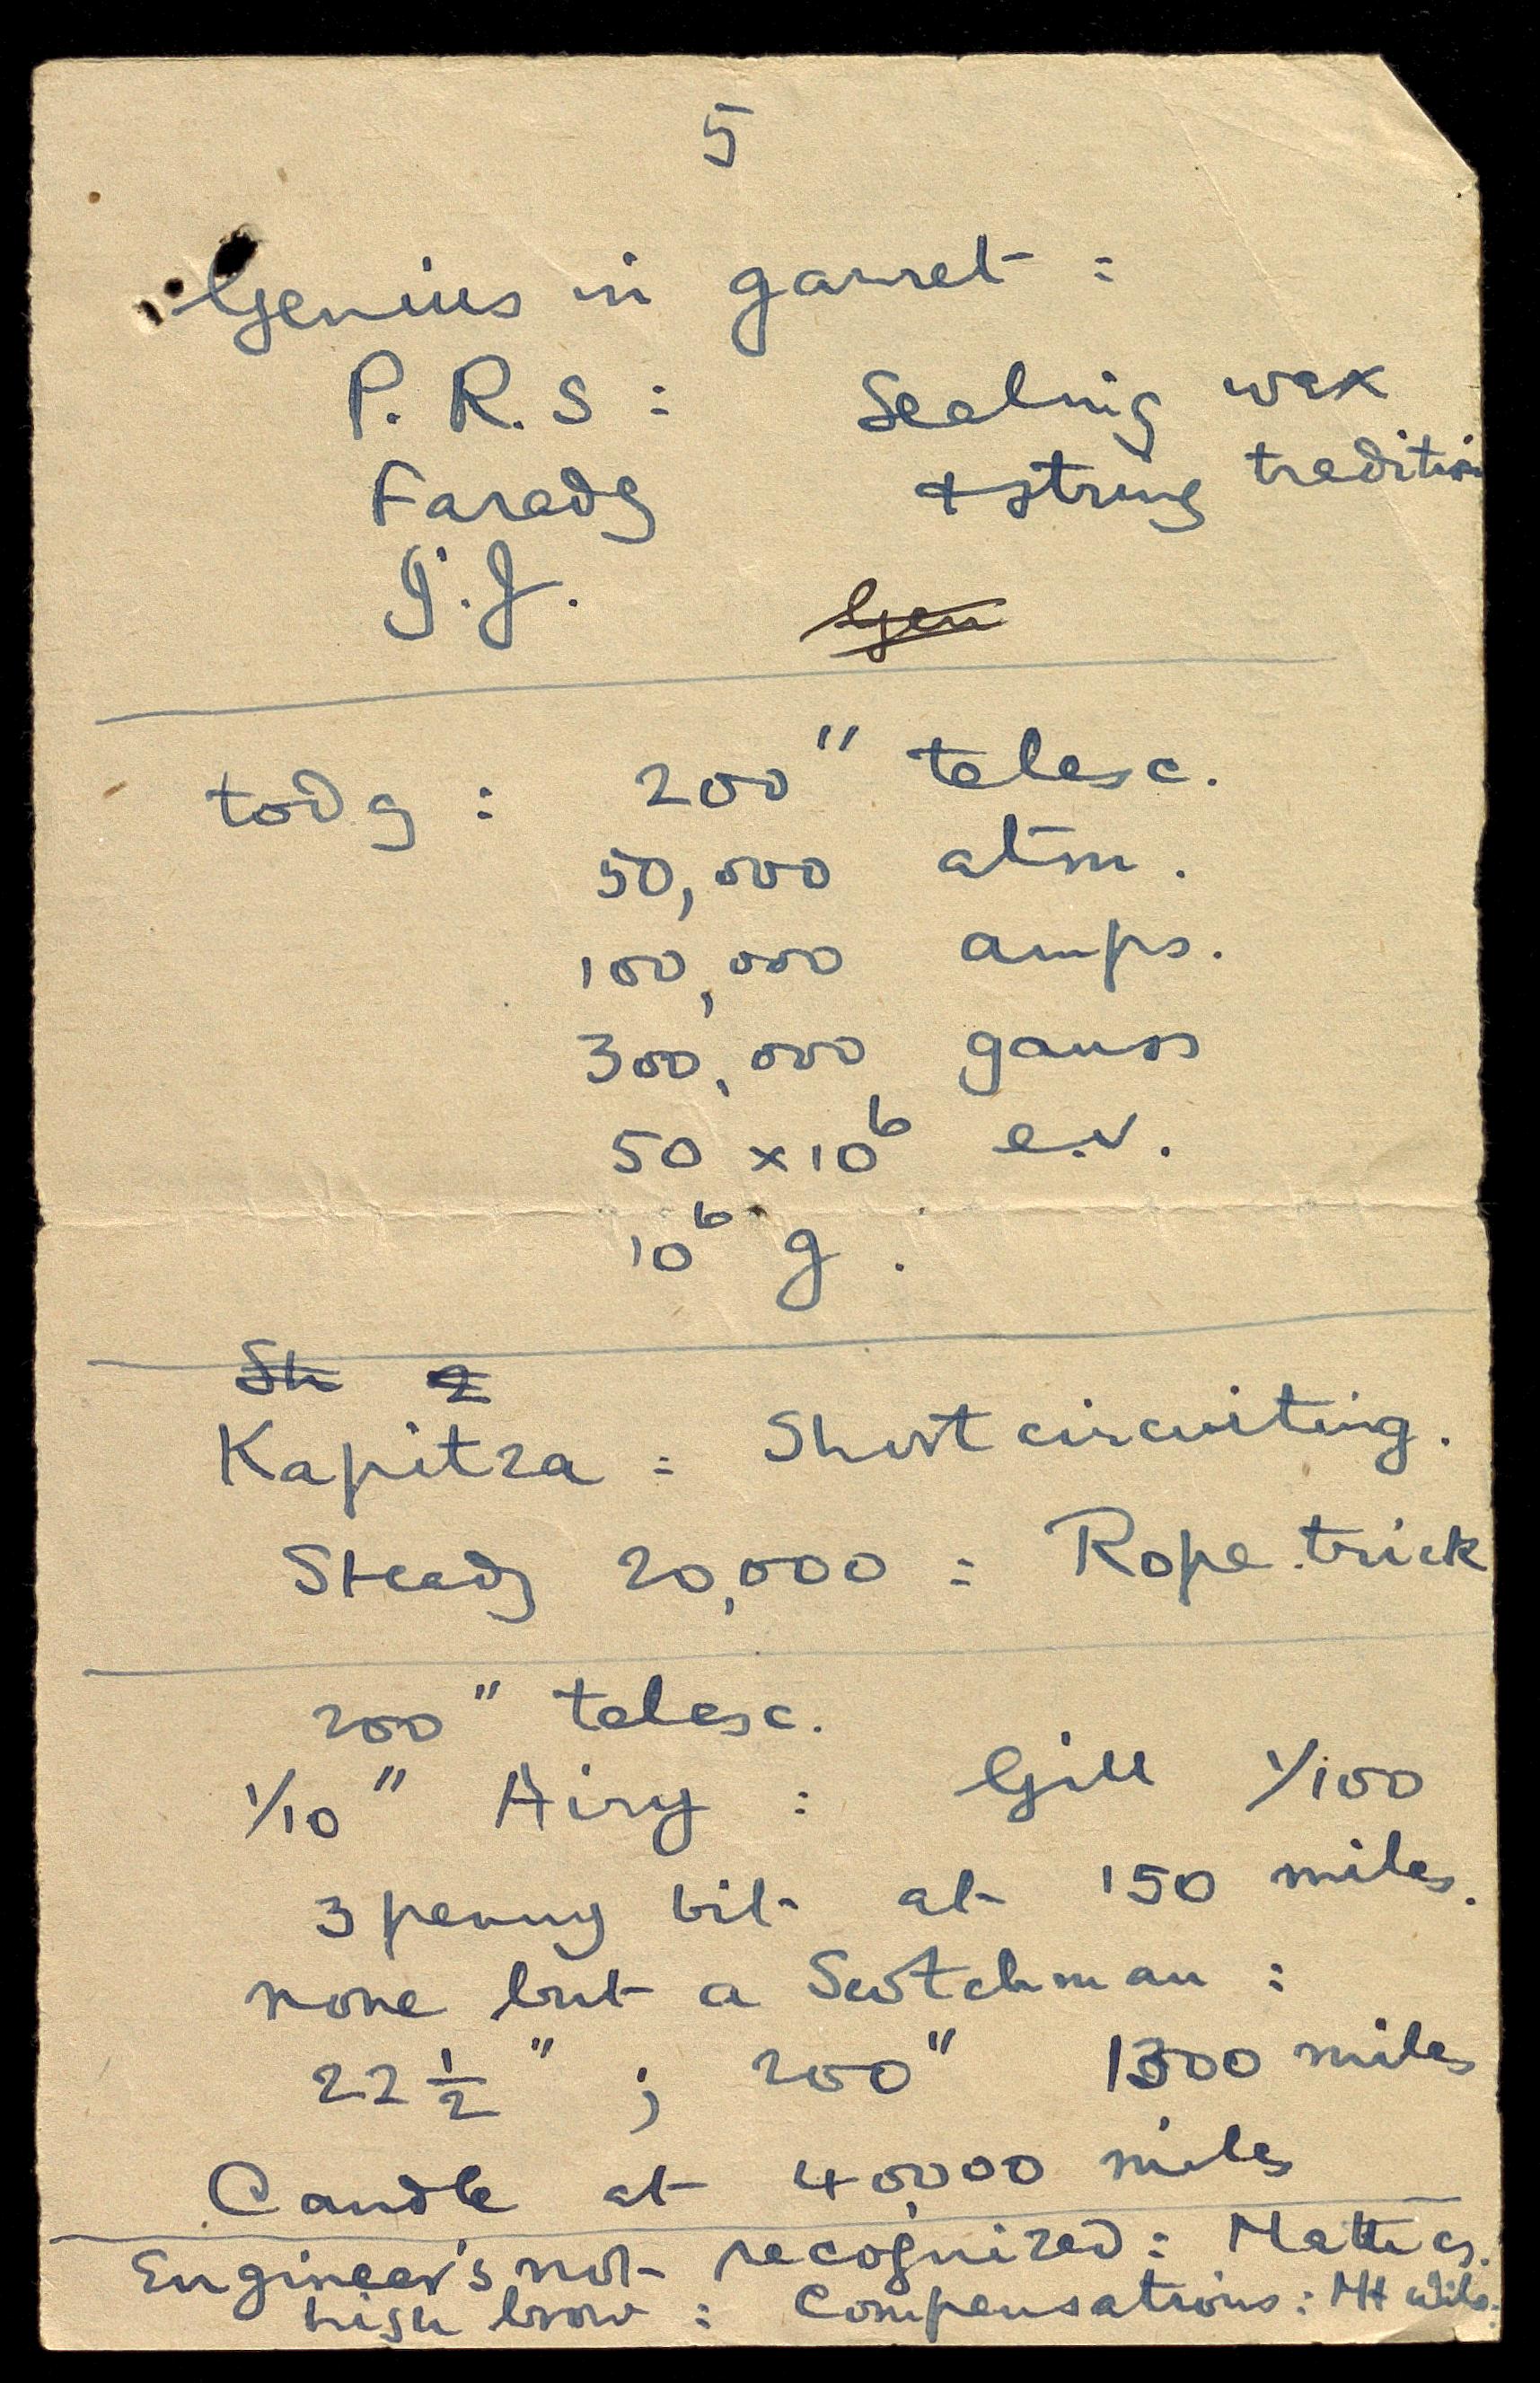 5
Genius in garret :
P. R. S : Sealing wax
Faraday + string tradition
J. J. Gen
today : 200" telesc.
50,000 atm.
100,000 amps.
300,000 gauss
50 x 10⁶ e.v.
10⁶ g.
Sh 2
Kapitza : Short circuiting.
Steady 20,000 : Rope trick
200" telesc.
1/10" Airy : Gill 1/100
3 penny bit at 150 miles.
none but a Scotchman :
22 1/2" ; 200" 1300 miles
Candle at 40,000 miles
Engineer's not recognized : Mattics.
high brow : Compensations : Mt Wils.